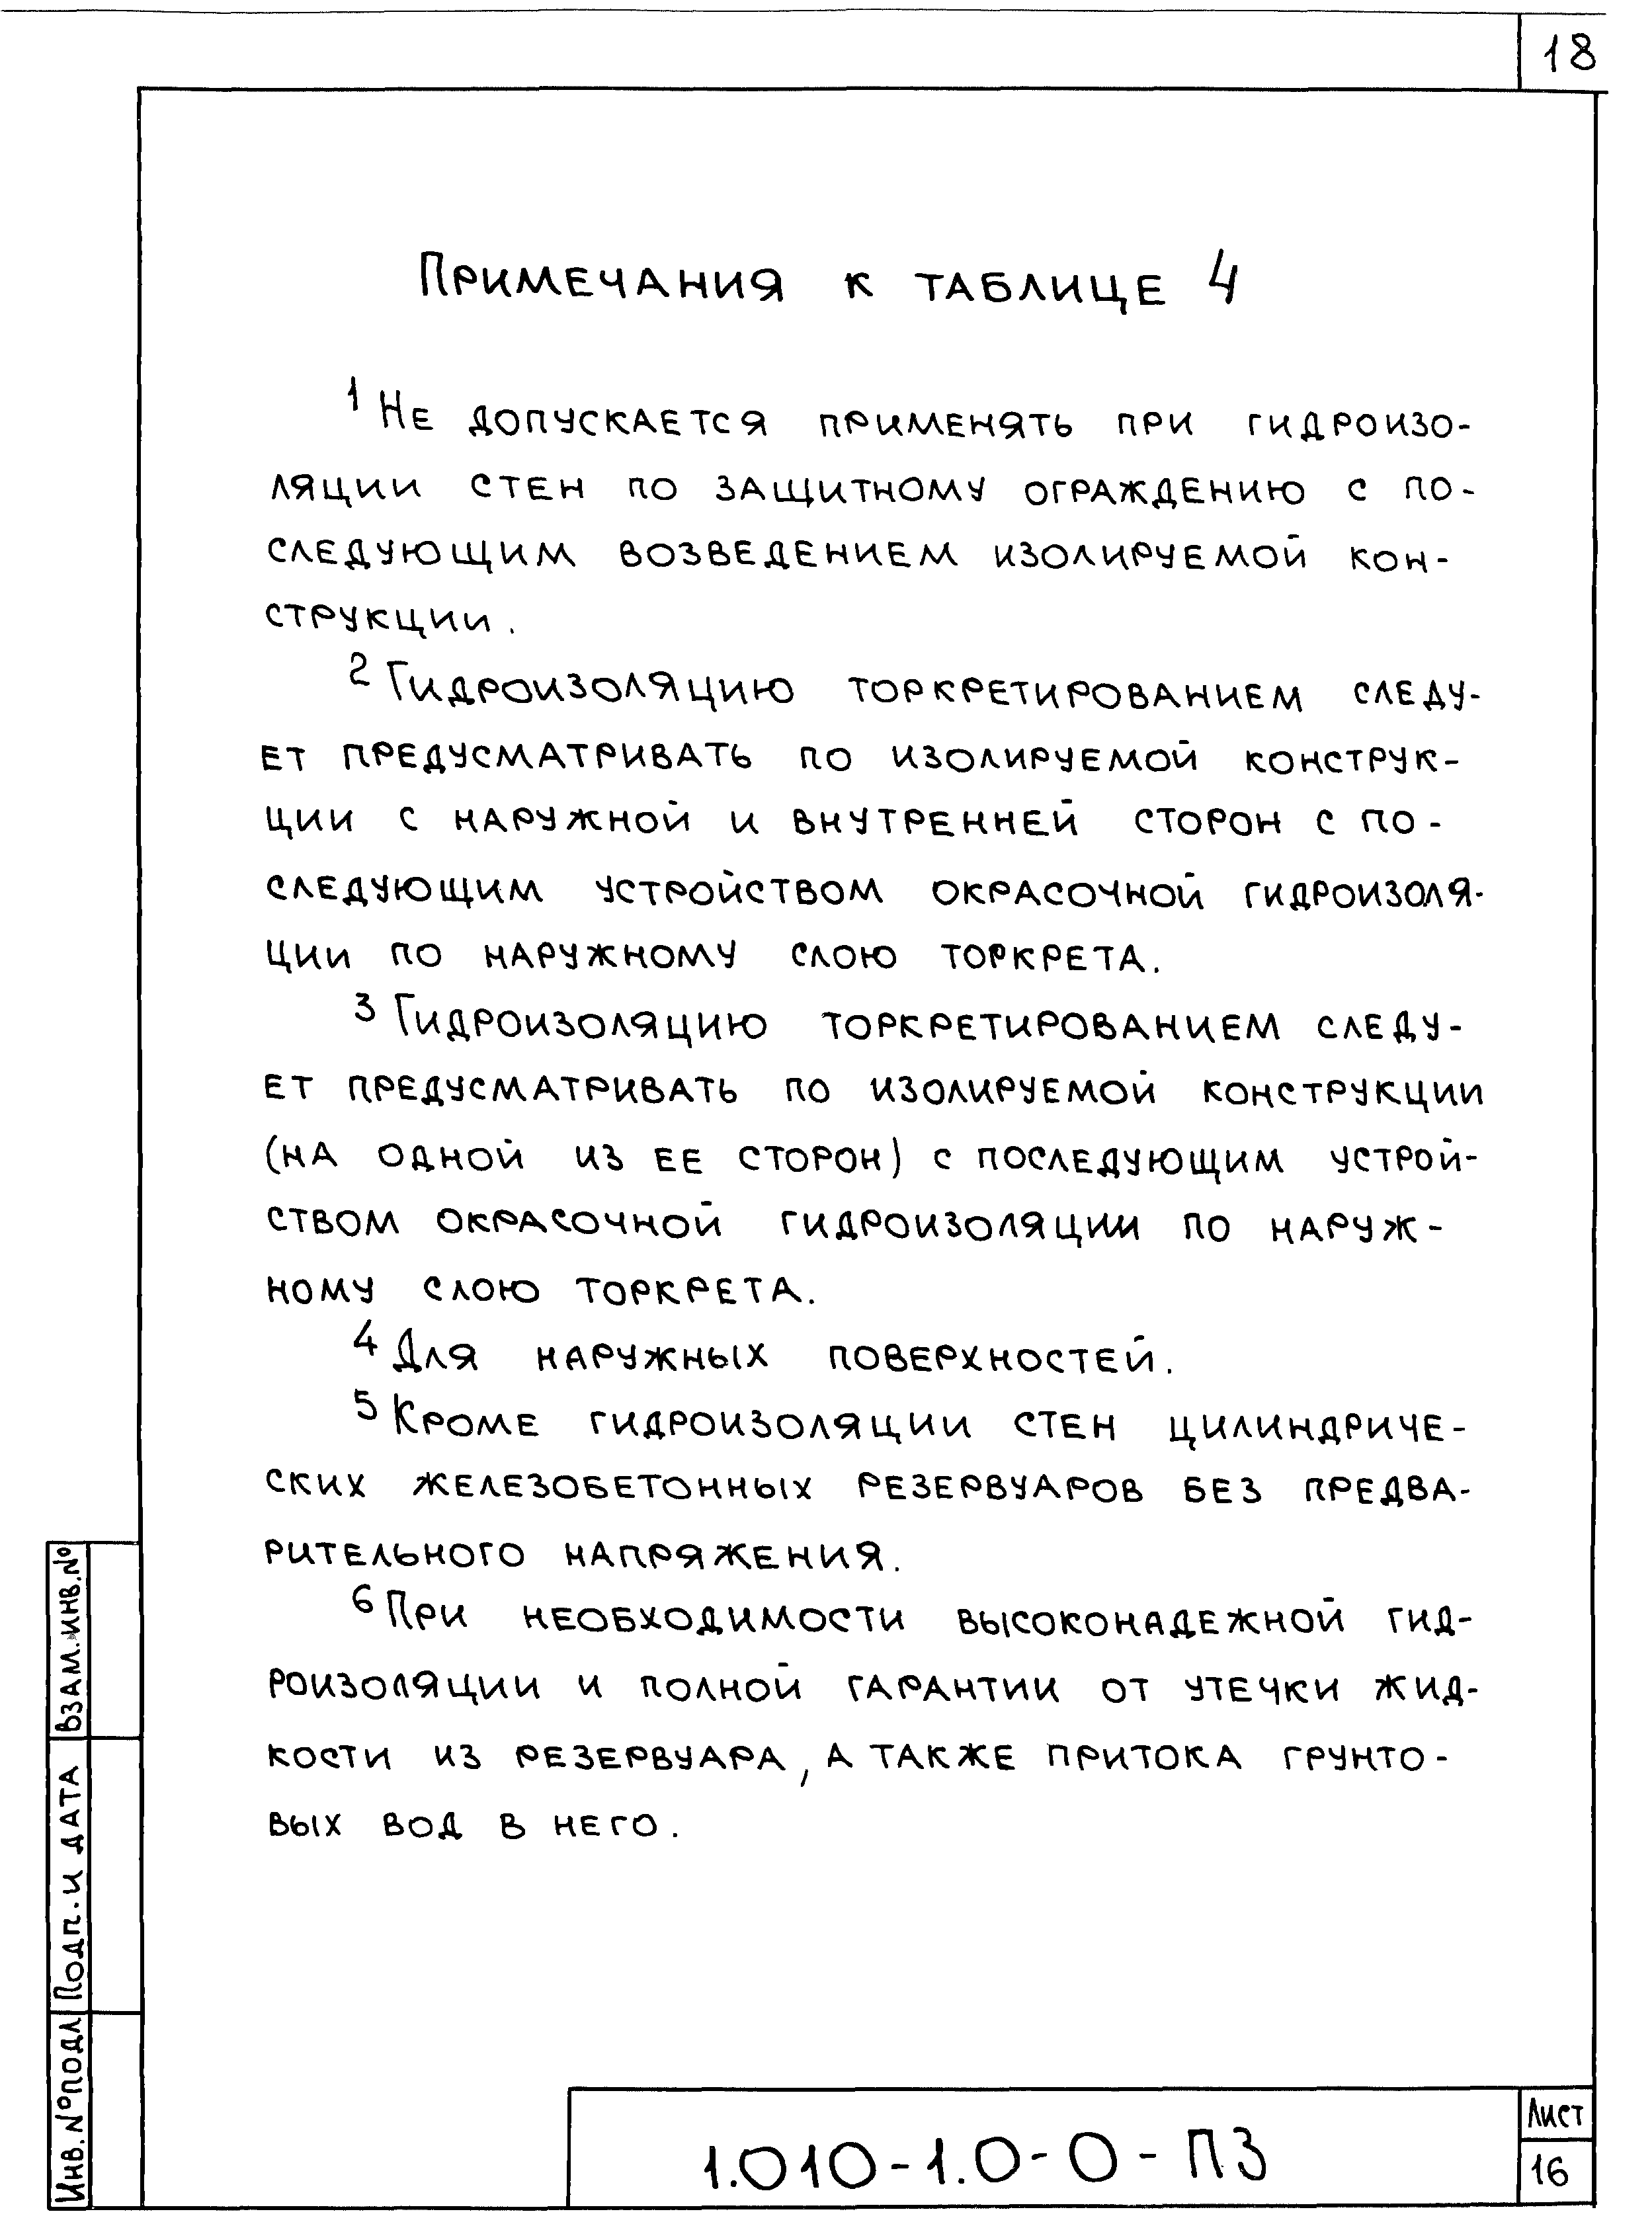 18
Примечания к таблице 4
1 Не допускается применять при гидроизо-
ляции стен по защитному ограждению с по-
следующим возведением изолируемой кон-
струкции.
2 Гидроизоляцию торкретированием следу-
ет предусматривать по изолируемой конструк-
ции с наружной и внутренней сторон с по-
следующим устройством окрасочной гидроизоля-
ции по наружному слою торкрета.
3 Гидроизоляцию торкретированием следу-
ет предусматривать по изолируемой конструкции
(на одной из ее сторон) с последующим устрой-
ством окрасочной гидроизоляции по наруж-
ному слою торкрета.
4 Для наружных поверхностей.
5 Кроме гидроизоляции стен цилиндриче-
ских железобетонных резервуаров без предва-
рительного напряжения.
6 При необходимости высоконадежной гид-
роизоляции и полной гарантии от утечки жид-
кости из резервуара, а также притока грунто-
вых вод в него.
Взам. инв. №
Подп. и дата
Инв. № подл
1.010-1.0-0-ПЗ
Лист
16